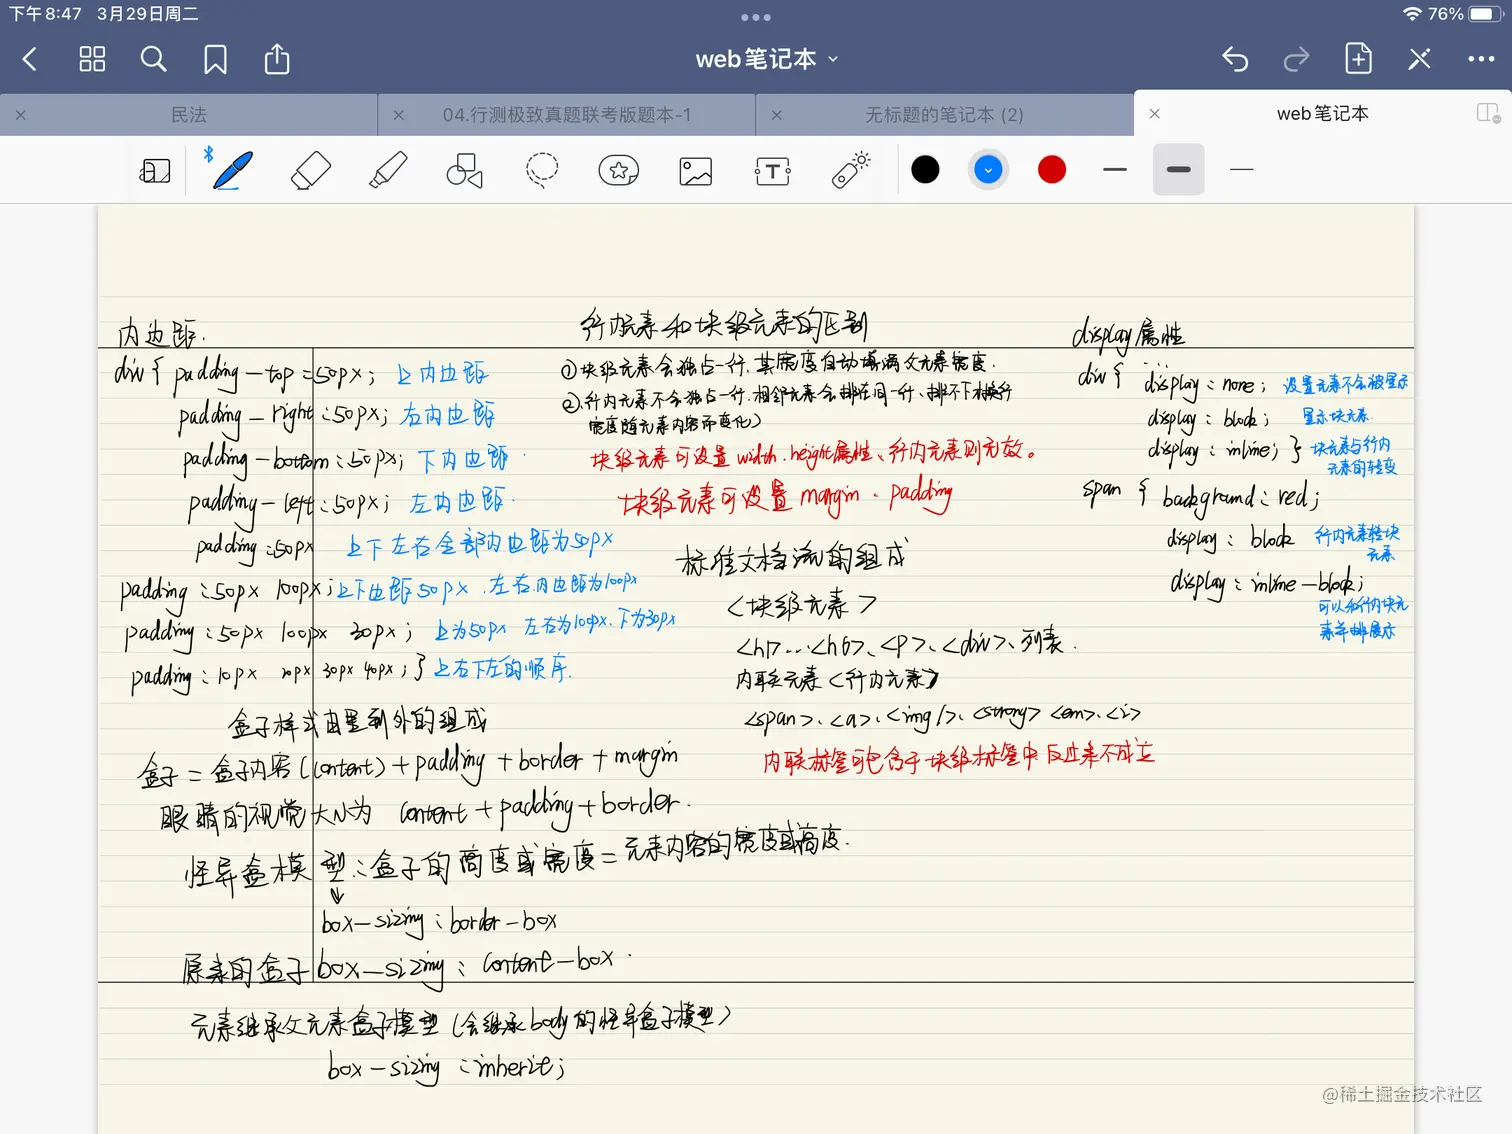 下午8:47 3月29日周二
76%
web笔记本
民法
04.行测极致真题联考版题本-1
无标题的笔记本 (2)
web笔记本
内边距.
div { padding-top:50px; 上内边距
padding-right:50px; 右内边距
padding-bottom:50px; 下内边距
padding-left:50px; 左内边距.
padding:50px 上下左右全部内边距为50px
padding:50px 100px; 上下边距50px.左右内边距为100px
padding:50px 100px 30px; 上为50px 左右为100px.下为30px
padding:10px 20px 30px 40px;} 上右下左的顺序.
盒子样式由里到外的组成
盒子=盒子内容(content)+padding+border+margin
眼睛的视觉大小为 content+padding+border.
怪异盒模型:盒子的高度或宽度=元素内容的宽度或高度.
↓
box-sizing:border-box
原来的盒子box-sizing:content-box.
元素继承父元素盒子模型(会继承body的怪异盒子模型)
box-sizing:inherit;
行内元素和块级元素的区别
①块级元素会独占一行.其宽度自动填满父元素宽度.
②行内元素不会独占一行.相邻元素会排在同一行、排不下才换行
宽度随元素内容而变化)
块级元素可设置width.height属性、行内元素则无效。
块级元素可设置margin.padding
标准文档流的组成
<块级元素>
<h1>...<h6>、<p>、<div>、列表.
内联元素<行内元素>
<span>、<a>、<img/>、<strong> <em>、<i>
内联标签可包含于块级标签中 反过来不成立
display属性
div{ ...
display:none; 设置元素不会被显示
display:block; 显示块元素.
display:inline; } 块元素与行内
元素的转变
span { background:red;
display:block 行内元素转块
元素
display:inline-block;
可以和行内块元
素并排展示
@稀土掘金技术社区